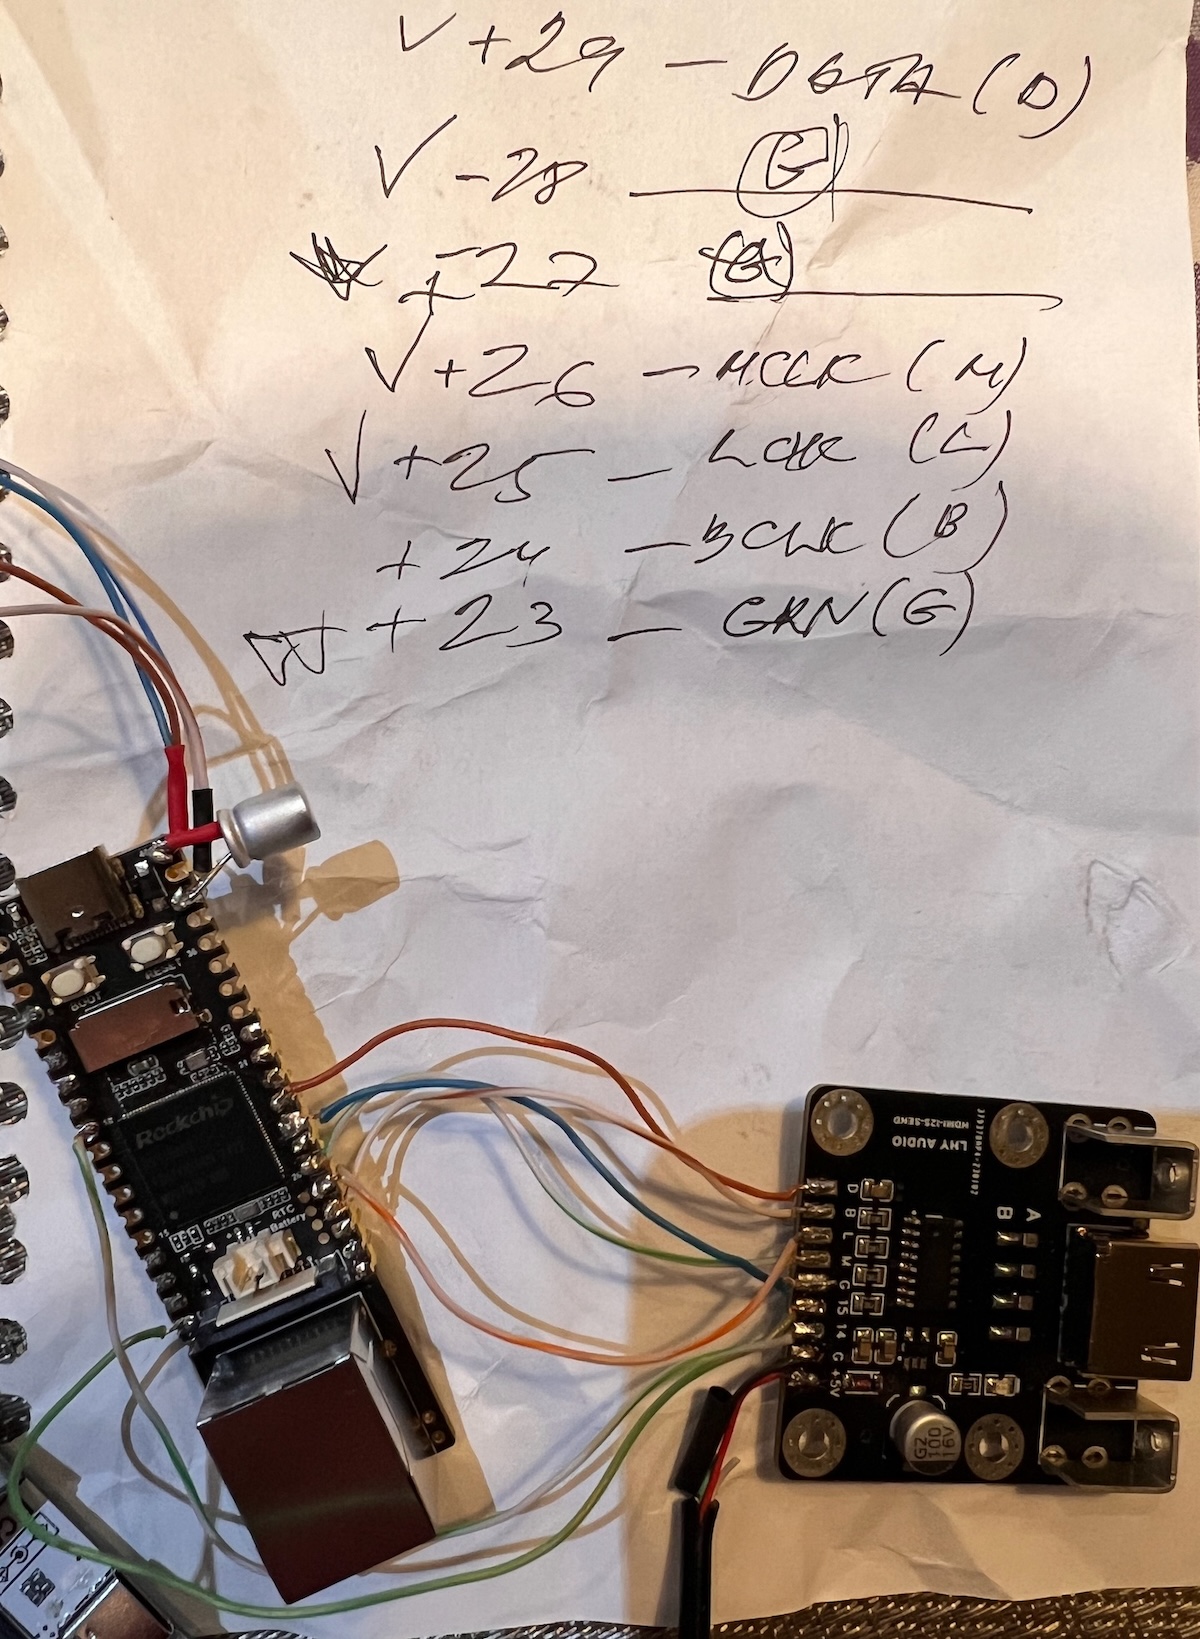 V +29 - DATA (D)
V -28 G
-27 (G)
V +26 - MCLK (M)
V +25 - LCLK (L)
+24 - BCLK (B)
+23 - GRN (G)
USB
BOOT
RESET
Rockchip
RTC
Battery
LHY AUDIO
HDMI-I2S-SEND
D
B
L
M
G
15
14
G
+5V
A
B
GZ
100
16V